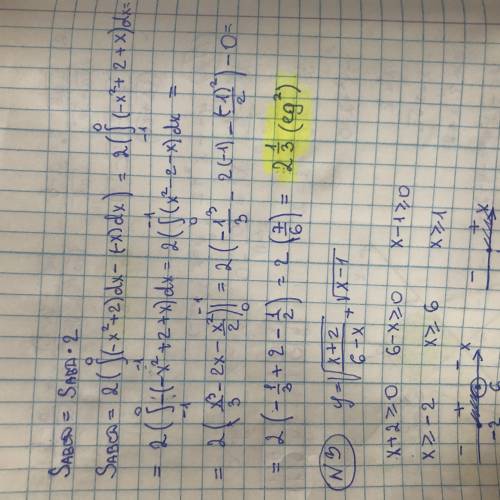 S_ABCD = S_ABD · 2
S_ABCD = 2(∫₋₁⁰(-x²+2)dx - (-x)dx) = 2(∫₋₁⁰(-x²+2+x)dx =
= 2(∫₋₁⁰-(-x²+2+x)dx = 2(∫₀⁻¹(x²-2-x)dx =
= 2(x³/3 - 2x - x²/2)|₀⁻¹ = 2(-1³/3 - 2(-1) - (-1)²/2) - 0 =
= 2(-1/3 + 2 - 1/2) = 2(7/6) = 2 1/3 (eg²)
N3 y = √((x+2)/(6-x)) + √(x-1)
x+2≥0 6-x≥0 x-1≥0
x≥-2 x≥6 x≥1
- + - x - + x
-2 6